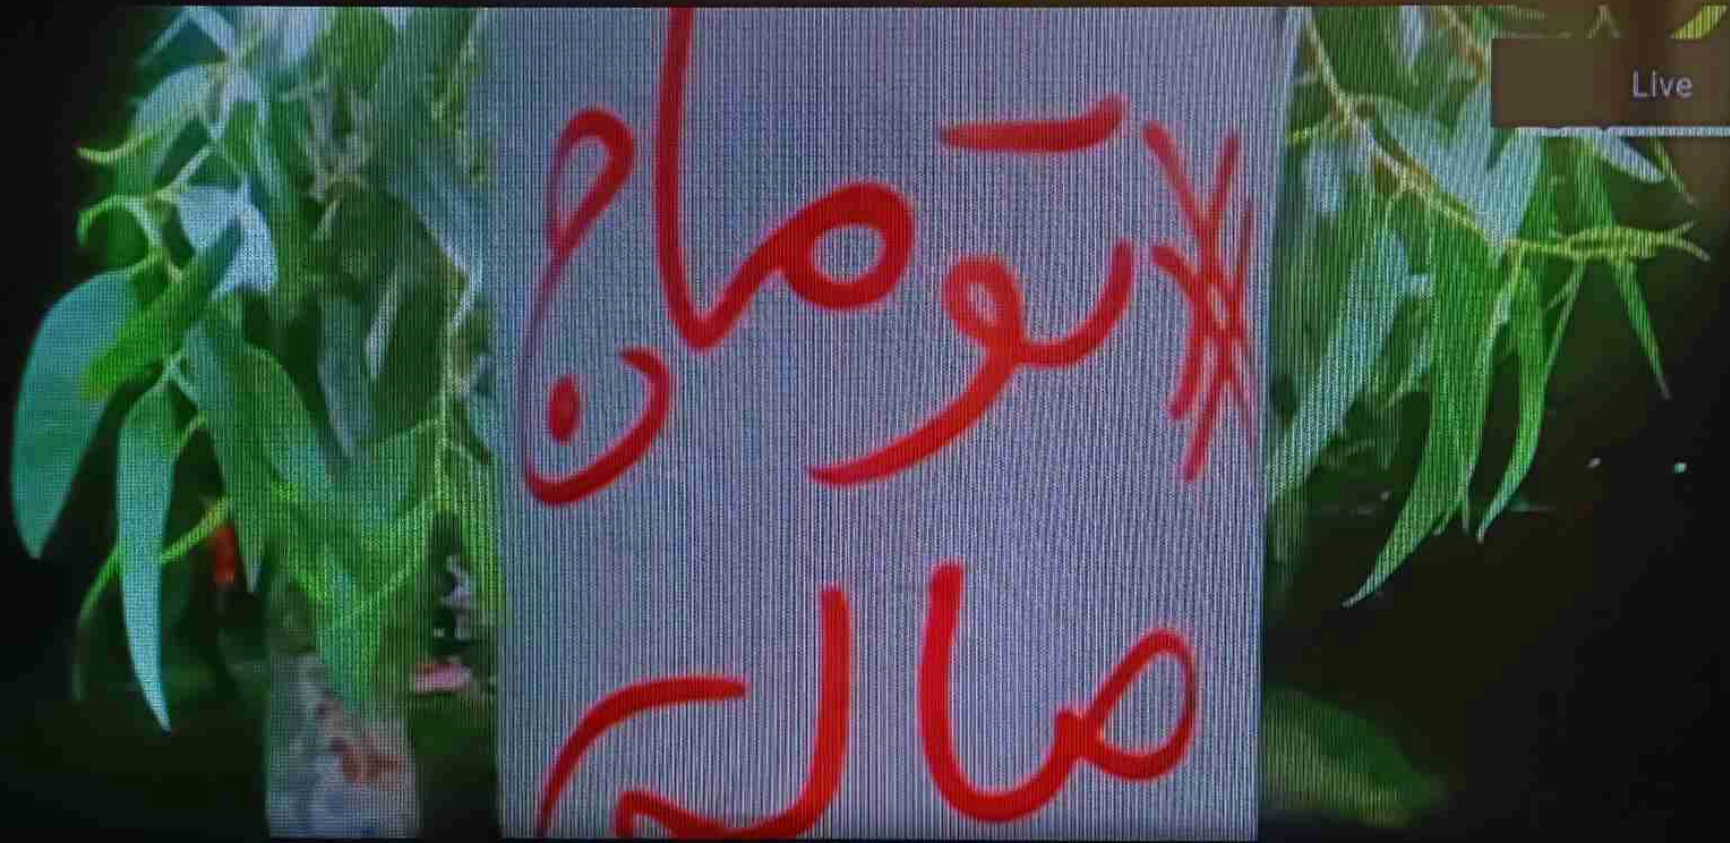 Live
تومان
ماله